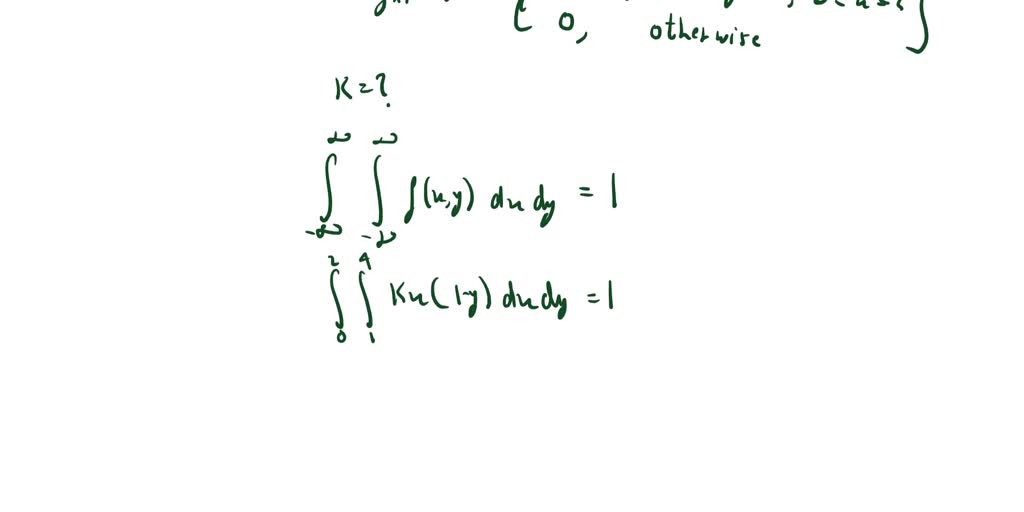 0, otherwise
K = ?
∫_{-∞}^{∞} ∫_{-∞}^{∞} f(x,y) dx dy = 1
∫_0^2 ∫_1^4 Kx(1-y) dx dy = 1